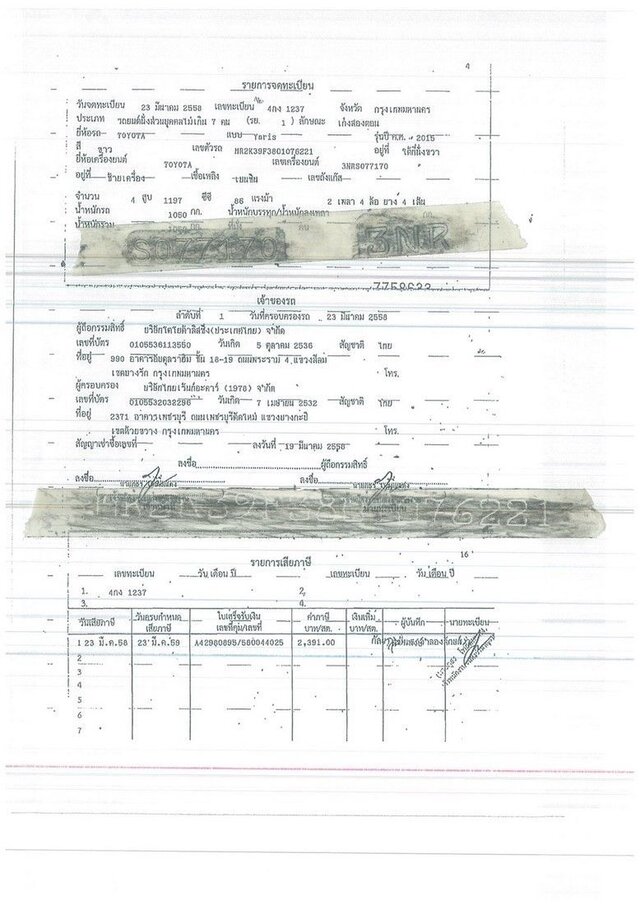 4
รายการจดทะเบียน
วันจดทะเบียน 23 มีนาคม 2558 เลขทะเบียน 4กง 1237 จังหวัด กรุงเทพมหานคร
ประเภท รถยนต์นั่งส่วนบุคคลไม่เกิน 7 คน (รย. 1) ลักษณะ เก๋งสองตอน
ยี่ห้อรถ TOYOTA แบบ Yaris รุ่นปี ค.ศ. 2015
สี ขาว เลขตัวรถ MR2K39F3801076221 อยู่ที่ ใต้ที่นั่งขวา
ยี่ห้อเครื่องยนต์ TOYOTA เลขเครื่องยนต์ 3NRS077170
อยู่ที่ ซ้ายเครื่อง เชื้อเพลิง เบนซิน เลขถังแก๊ส
จำนวน 4 สูบ 1197 ซีซี 86 แรงม้า 2 เพลา 4 ล้อ ยาง 4 เส้น
น้ำหนักรถ 1050 กก. น้ำหนักบรรทุก/น้ำหนักลงเพลา กก.
น้ำหนักรวม
3NR
เจ้าของรถ
ลำดับที่ 1 วันที่ครอบครองรถ 23 มีนาคม 2558
ผู้ถือกรรมสิทธิ์ บริษัทโตโยต้าลีสซิ่ง(ประเทศไทย) จำกัด
เลขที่บัตร 0105536113550 วันเกิด 5 ตุลาคม 2536 สัญชาติ ไทย
ที่อยู่ 990 อาคารอับดุลราฮิม ชั้น 18-19 ถนนพระราม 4 แขวงสีลม
เขตบางรัก กรุงเทพมหานคร โทร.
ผู้ครอบครอง บริษัทไทยเร้นท์อะคาร์ (1978) จำกัด
เลขที่บัตร 0105532032296 วันเกิด 7 เมษายน 2532 สัญชาติ ไทย
ที่อยู่ 2371 อาคารเพชรบุรี ถนนเพชรบุรีตัดใหม่ แขวงบางกะปิ
เขตห้วยขวาง กรุงเทพมหานคร โทร.
สัญญาเช่าซื้อเลขที่ ลงวันที่ 19 มีนาคม 2558
ลงชื่อ ผู้ถือกรรมสิทธิ์
ลงชื่อ ลงชื่อ
16
รายการเสียภาษี
เลขทะเบียน วัน เดือน ปี เลขทะเบียน วัน เดือน ปี
1. 4กง 1237 2.
3. 4.
วันเสียภาษี วันครบกำหนดเสียภาษี ใบเสร็จรับเงิน เลขที่คุม/เลขที่ ค่าภาษี บาท/สต. เงินเพิ่ม บาท/สต. ผู้บันทึก นายทะเบียน
1 23 มี.ค.58 23 มี.ค.59 A42980895/580044025 2,391.00
2
3
4
5
6
7